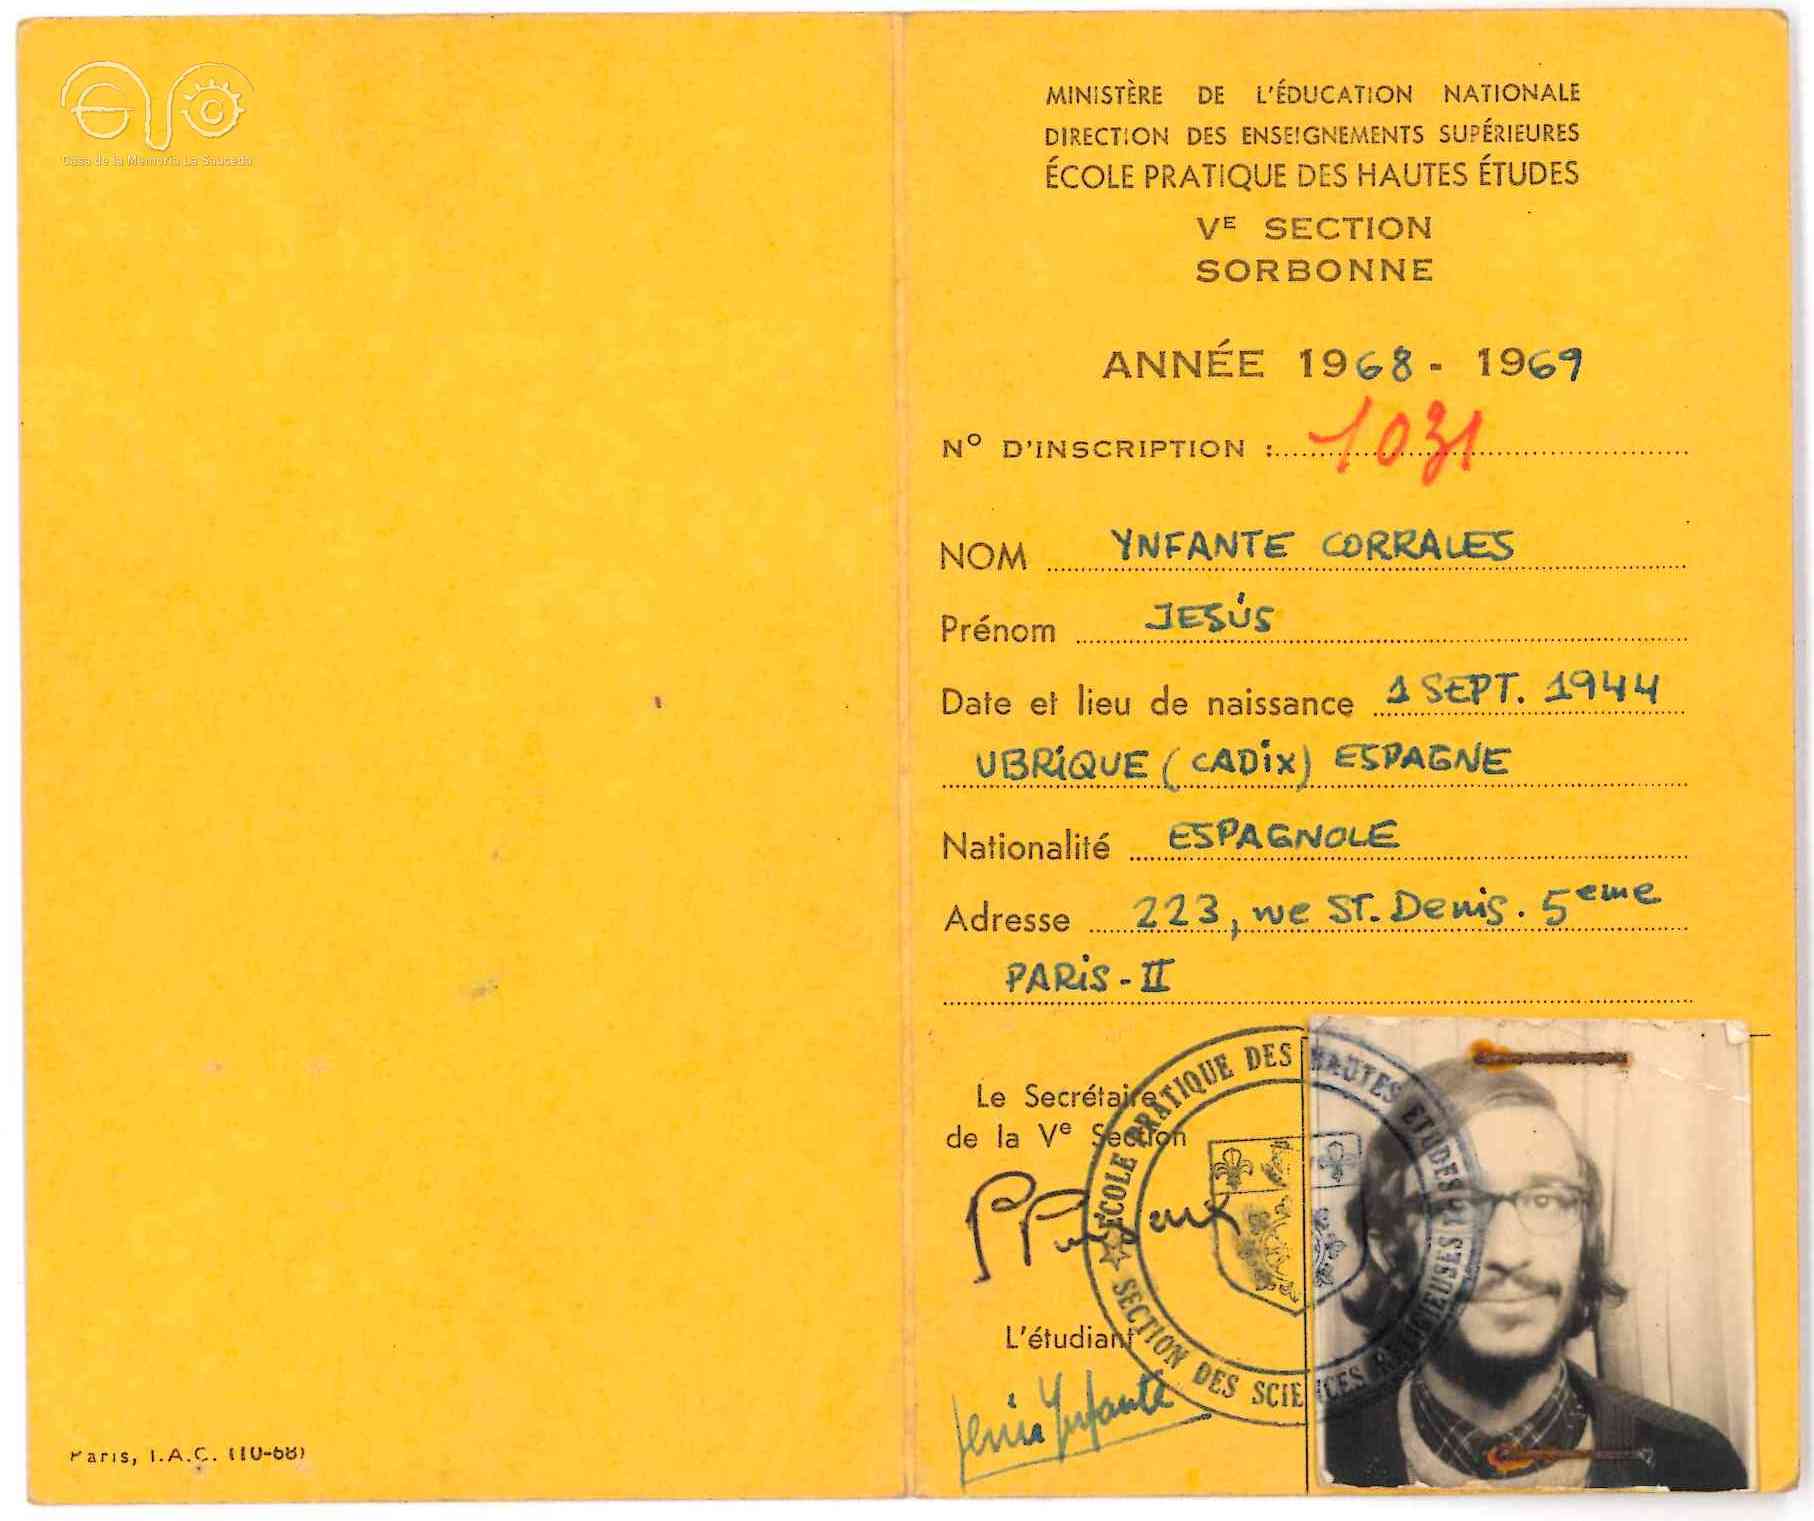 Casa de la Memoria La Sauceda
MINISTÈRE DE L'ÉDUCATION NATIONALE
DIRECTION DES ENSEIGNEMENTS SUPÉRIEURES
ÉCOLE PRATIQUE DES HAUTES ÉTUDES
VE SECTION
SORBONNE
ANNÉE 1968 - 1969
No D'INSCRIPTION : 1031
NOM YNFANTE CORRALES
Prénom JESÚS
Date et lieu de naissance 1 SEPT. 1944
UBRIQUE (CADIX) ESPAGNE
Nationalité ESPAGNOLE
Adresse 223, rue ST. Denis. 5eme
PARIS - II
Le Secrétaire
de la Ve Section
ÉCOLE PRATIQUE DES HAUTES ETUDES
SECTION DES SCIENCES RELIGIEUSES
L'étudiant
Jesús Ynfante
Paris, I.A.C. (10-68)